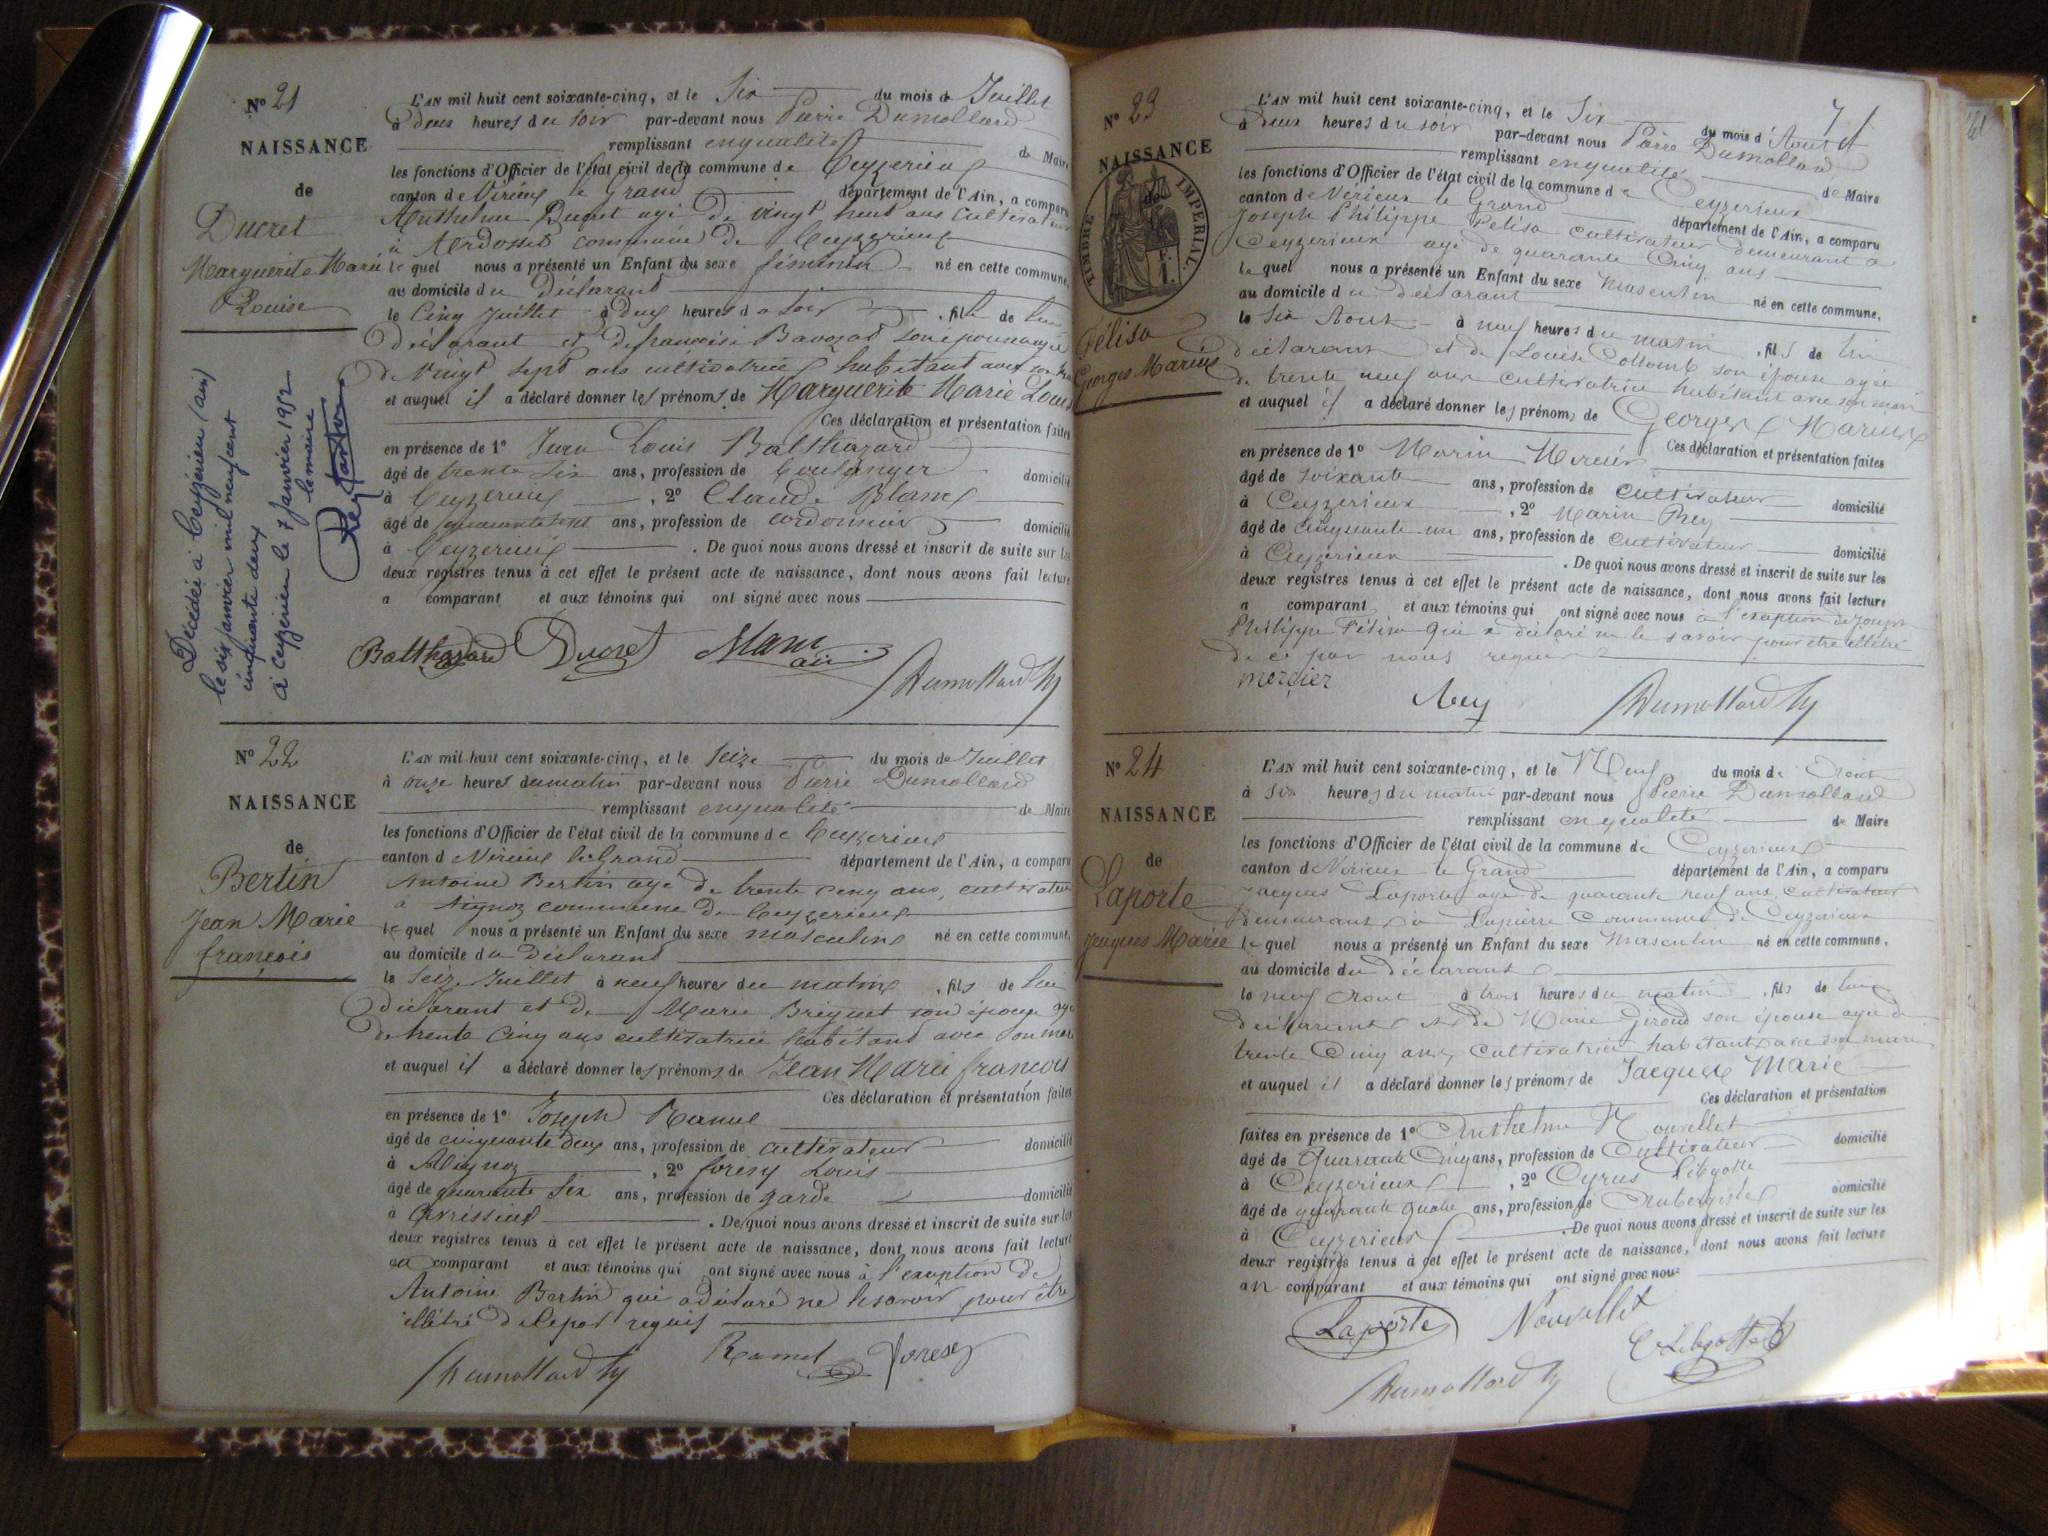 N° 21
NAISSANCE
de
Ducret
Marguerite Marie
Louise
Décédée à Ceyzérieu (ain)
le six janvier mil neuf cent
cinquante deux
à Ceyzérieu le 7 janvier 1952
le maire
L'AN mil huit cent soixante-cinq, et le Six du mois de Juillet
à deux heures du soir par-devant nous Pierre Dumollard
remplissant en qualité de Maire
les fonctions d'Officier de l'état civil de la commune de Ceyzerieu
canton de Virieu le Grand département de l'Ain, a comparu
Anthelme Ducret agé de vingt huit ans cultivateur
à commune de Ceyzerieu
le quel nous a présenté un Enfant du sexe féminin né en cette commune,
au domicile du déclarant
le Cinq Juillet à deux heures du soir , fille de lui
déclarant et de françoise son épouse agée
de vingt sept ans cultivatrice habitant avec son
et auquel il a déclaré donner les prénoms de Marguerite Marie Louise
Ces déclaration et présentation faites
en présence de 1° Jean Louis Balthazard
âgé de trente six ans, profession de boulanger domicilié
à Ceyzerieu , 2° Claude Blanc
âgé de quarante sept ans, profession de cordonnier domicilié
à Ceyzerieu . De quoi nous avons dressé et inscrit de suite sur les
deux registres tenus à cet effet le présent acte de naissance, dont nous avons fait lecture
a comparant et aux témoins qui ont signé avec nous
Balthazard Ducret Dumollard
N° 22
NAISSANCE
de
Bertin
Jean Marie
françois
L'AN mil huit cent soixante-cinq, et le Seize du mois de Juillet
à onze heures du matin par-devant nous Pierre Dumollard
remplissant en qualité de Maire
les fonctions d'Officier de l'état civil de la commune de Ceyzerieu
canton de Virieu le Grand département de l'Ain, a comparu
Antoine Bertin age de trente cinq ans, cultivateur
à Aignoz commune de Ceyzerieu
le quel nous a présenté un Enfant du sexe masculin né en cette commune,
au domicile du déclarant
le Seize Juillet à neuf heures du matin , fils de lui
déclarant et de Marie Briquet son épouse age
de trente Cinq ans cultivatrice habitant avec son mari
et auquel il a déclaré donner les prénoms de Jean Marie françois
Ces déclaration et présentation faites
en présence de 1° Joseph Ramel
âgé de cinquante deux ans, profession de cultivateur domicilié
à Aignoz , 2° foresy Louis
âgé de quarante six ans, profession de garde domicilié
à Avrissieu . De quoi nous avons dressé et inscrit de suite sur les
deux registres tenus à cet effet le présent acte de naissance, dont nous avons fait lecture
au comparant et aux témoins qui ont signé avec nous à l'exeption de
Antoine Bertin qui a déclaré ne le savoir pour être
illétré de ce par requis
Dumollard Ramel foresy
N° 23
NAISSANCE
de
TIMBRE IMPERIAL
Félisa
Georges Marius
71
L'AN mil huit cent soixante-cinq, et le Six du mois d'Aout
à deux heures du soir par-devant nous Pierre Dumollard
remplissant en qualité de Maire
les fonctions d'Officier de l'état civil de la commune de Ceyzerieux
canton de Vérieux le Grand département de l'Ain, a comparu
Joseph Philippe Félisa cultivateur demeurant à
Ceyzerieux age de quarante Cinq ans
le quel nous a présenté un Enfant du sexe Masculin né en cette commune,
au domicile du déclarant
le Six Aout à neuf heures du matin , fils de lui
déclarant et de Louise Collomb son épouse agée
de trente neuf ans cultivatrice habitant avec son mari
et auquel il a déclaré donner les prénoms de Georges Marius
Ces déclaration et présentation faites
en présence de 1° Marin Mercier
âgé de soixante ans, profession de cultivateur domicilié
à Ceyzerieux , 2° Marin Rey
âgé de cinquante un ans, profession de cultivateur domicilié
à Ceyzerieux . De quoi nous avons dressé et inscrit de suite sur les
deux registres tenus à cet effet le présent acte de naissance, dont nous avons fait lecture
a comparant et aux témoins qui ont signé avec nous à l'exeption de Joseph
Philippe Félisa qui a déclaré ne le savoir pour etre illétré
de ce par nous requis
mercier Rey Dumollard
N° 24
NAISSANCE
de
Laporte
Jacques Marie
L'AN mil huit cent soixante-cinq, et le Neuf du mois de Aout
à six heures du matin par-devant nous Pierre Dumollard
remplissant en qualité de Maire
les fonctions d'Officier de l'état civil de la commune de Ceyzerieux
canton de Vérieux le Grand département de l'Ain, a comparu
Jacques Laporte age de quarante neuf ans cultivateur
demeurant à Lapierre Commune de Ceyzerieux
le quel nous a présenté un Enfant du sexe Masculin né en cette commune,
au domicile du déclarant
le neuf Aout à trois heures du matin , fils de lui
déclarant et de Marie Giroud son épouse age de
trente Cinq ans cultivatrice habitant avec son mari
et auquel il a déclaré donner les prénoms de Jacques Marie
Ces déclaration et présentation
faites en présence de 1° Anthelme Nouvellet
âgé de Quarante Cinq ans, profession de Cultivateur domicilié
à Ceyzerieux , 2° Cyrus
âgé de quarante quatre ans, profession de Aubergiste domicilié
à Ceyzerieux . De quoi nous avons dressé et inscrit de suite sur les
deux registres tenus à cet effet le présent acte de naissance, dont nous avons fait lecture
au comparant et aux témoins qui ont signé avec nous
Laporte Nouvellet
Dumollard